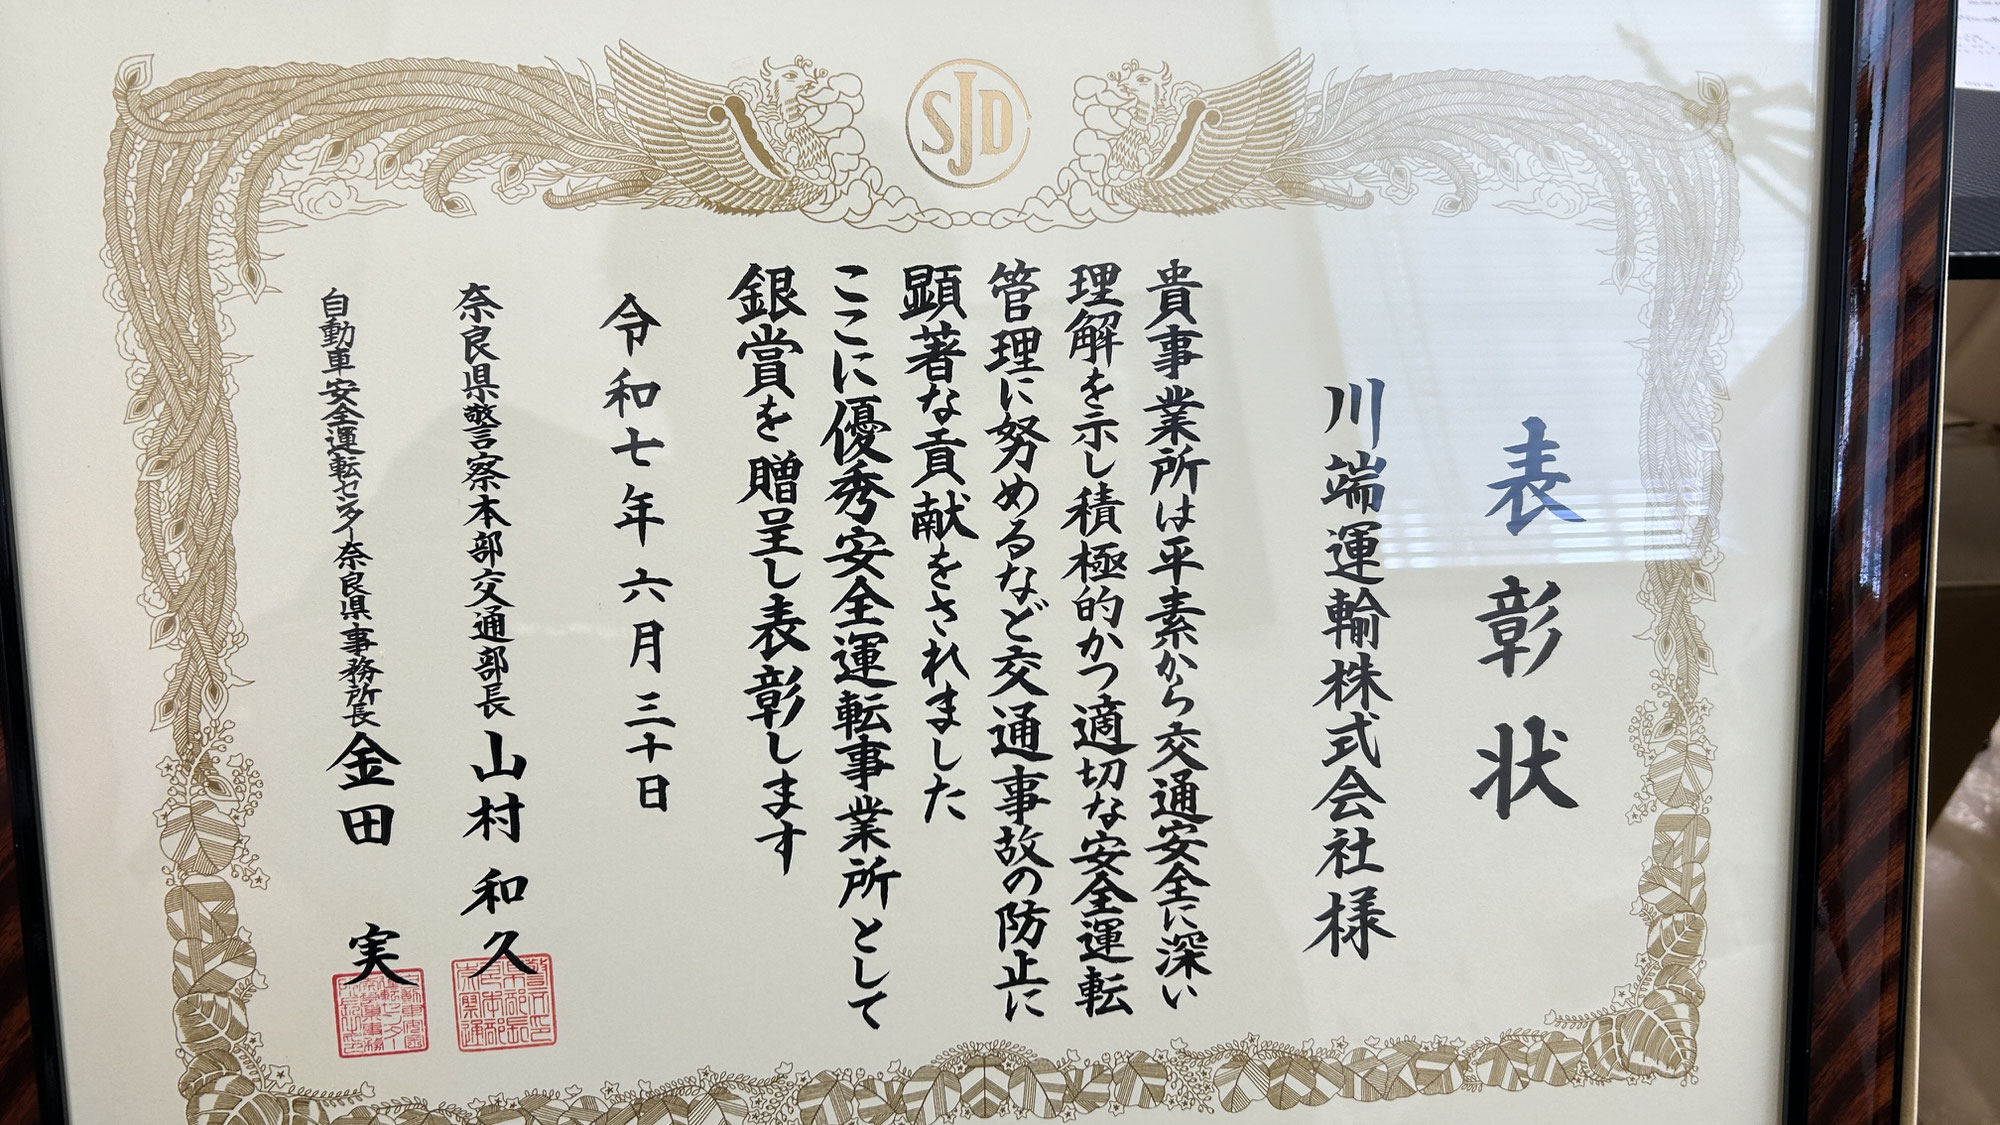 SJD
表彰状
川端運輸株式会社様
貴事業所は平素から交通安全に深い
理解を示し積極的かつ適切な安全運転
管理に努めるなど交通事故の防止に
顕著な貢献をされました
ここに優秀安全運転事業所として
銀賞を贈呈し表彰します
令和七年六月三十日
奈良県警察本部交通部長 山村和久
自動車安全運転センター奈良県事務所長 金田 実